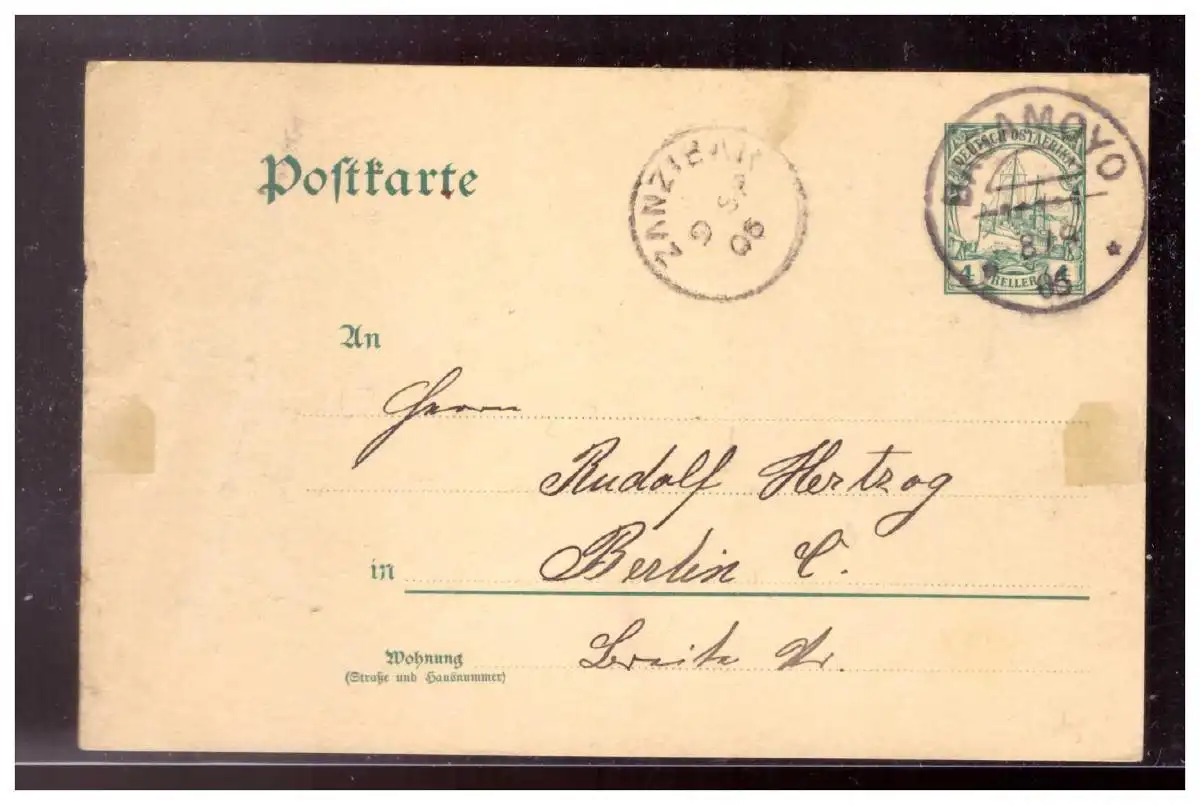 BAGAMOYO
DEUTSCH OSTAFRIKA
8/9
05
4 HELLER 4
ZANZIBAR
9 SP
06
Postkarte
An
Herrn
Rudolf Hertzog
in Berlin C.
Wohnung Breite Str.
(Straße und Hausnummer)